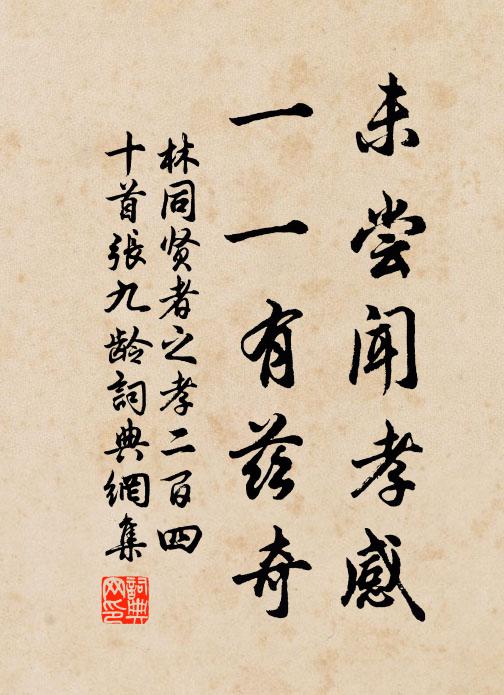 未尝闻孝感
一一有兹奇
林同贤者之孝二百四
十首張九龄詞典網集
詞典
网印